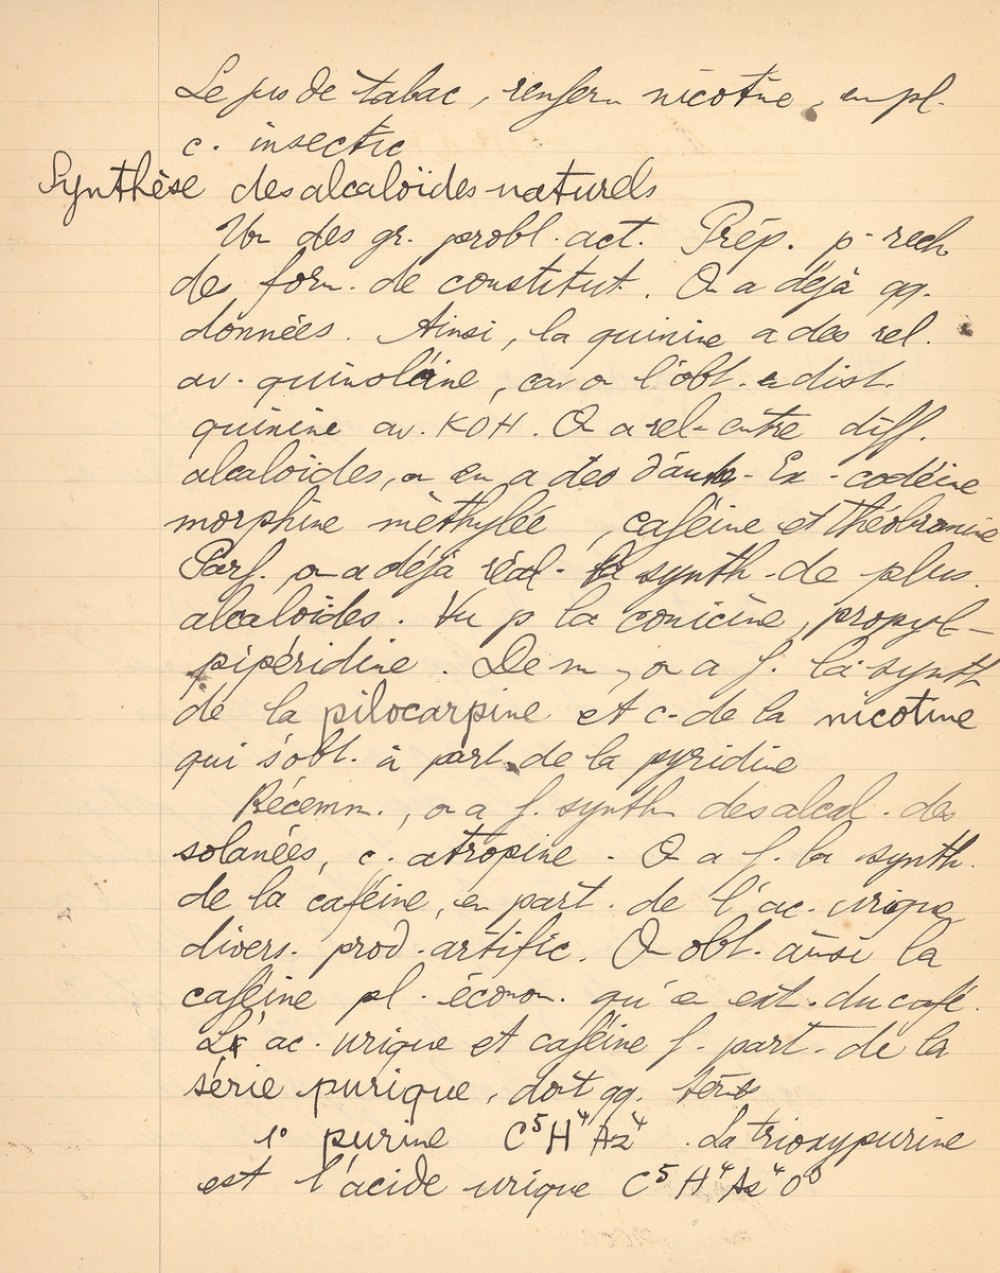 Le jus de tabac, renferm nicotine, empl.
c. insectic
Synthèse des alcaloïdes naturels
Un des gr. probl. act. Prép. pr rech
des form. de constitut. On a déjà qq.
données. Ainsi, la quinine a des rel.
av. quinoléine, car on l'obt. en dist.
quinine av. KOH. On a rel. entre diff.
alcaloïdes, on en a des d'autr. Ex - codéine
morphine méthylée, caféine et théobromine
Parf. on a déjà réal. la synth. de plus.
alcaloïdes. Vu p la conicine, propyl-
pipéridine. De m, on a f. la synth
de la pilocarpine et c. de la nicotine
qui s'obt. à part. de la pyridine
Récemm., on a f. synth des alcal. des
solanées, c. atropine. On a f. la synth.
de la caféine, en part. de l'ac. urique
divers. prod. artific. On obt. ainsi la
caféine pl. économ. qu'en ext. du café.
L' ac. urique et caféine f. part. de la
série purique, dont qq.
1° purine C⁵H⁴Az⁴. La trioxypurine
est l'acide urique C⁵H⁴Az⁴O³